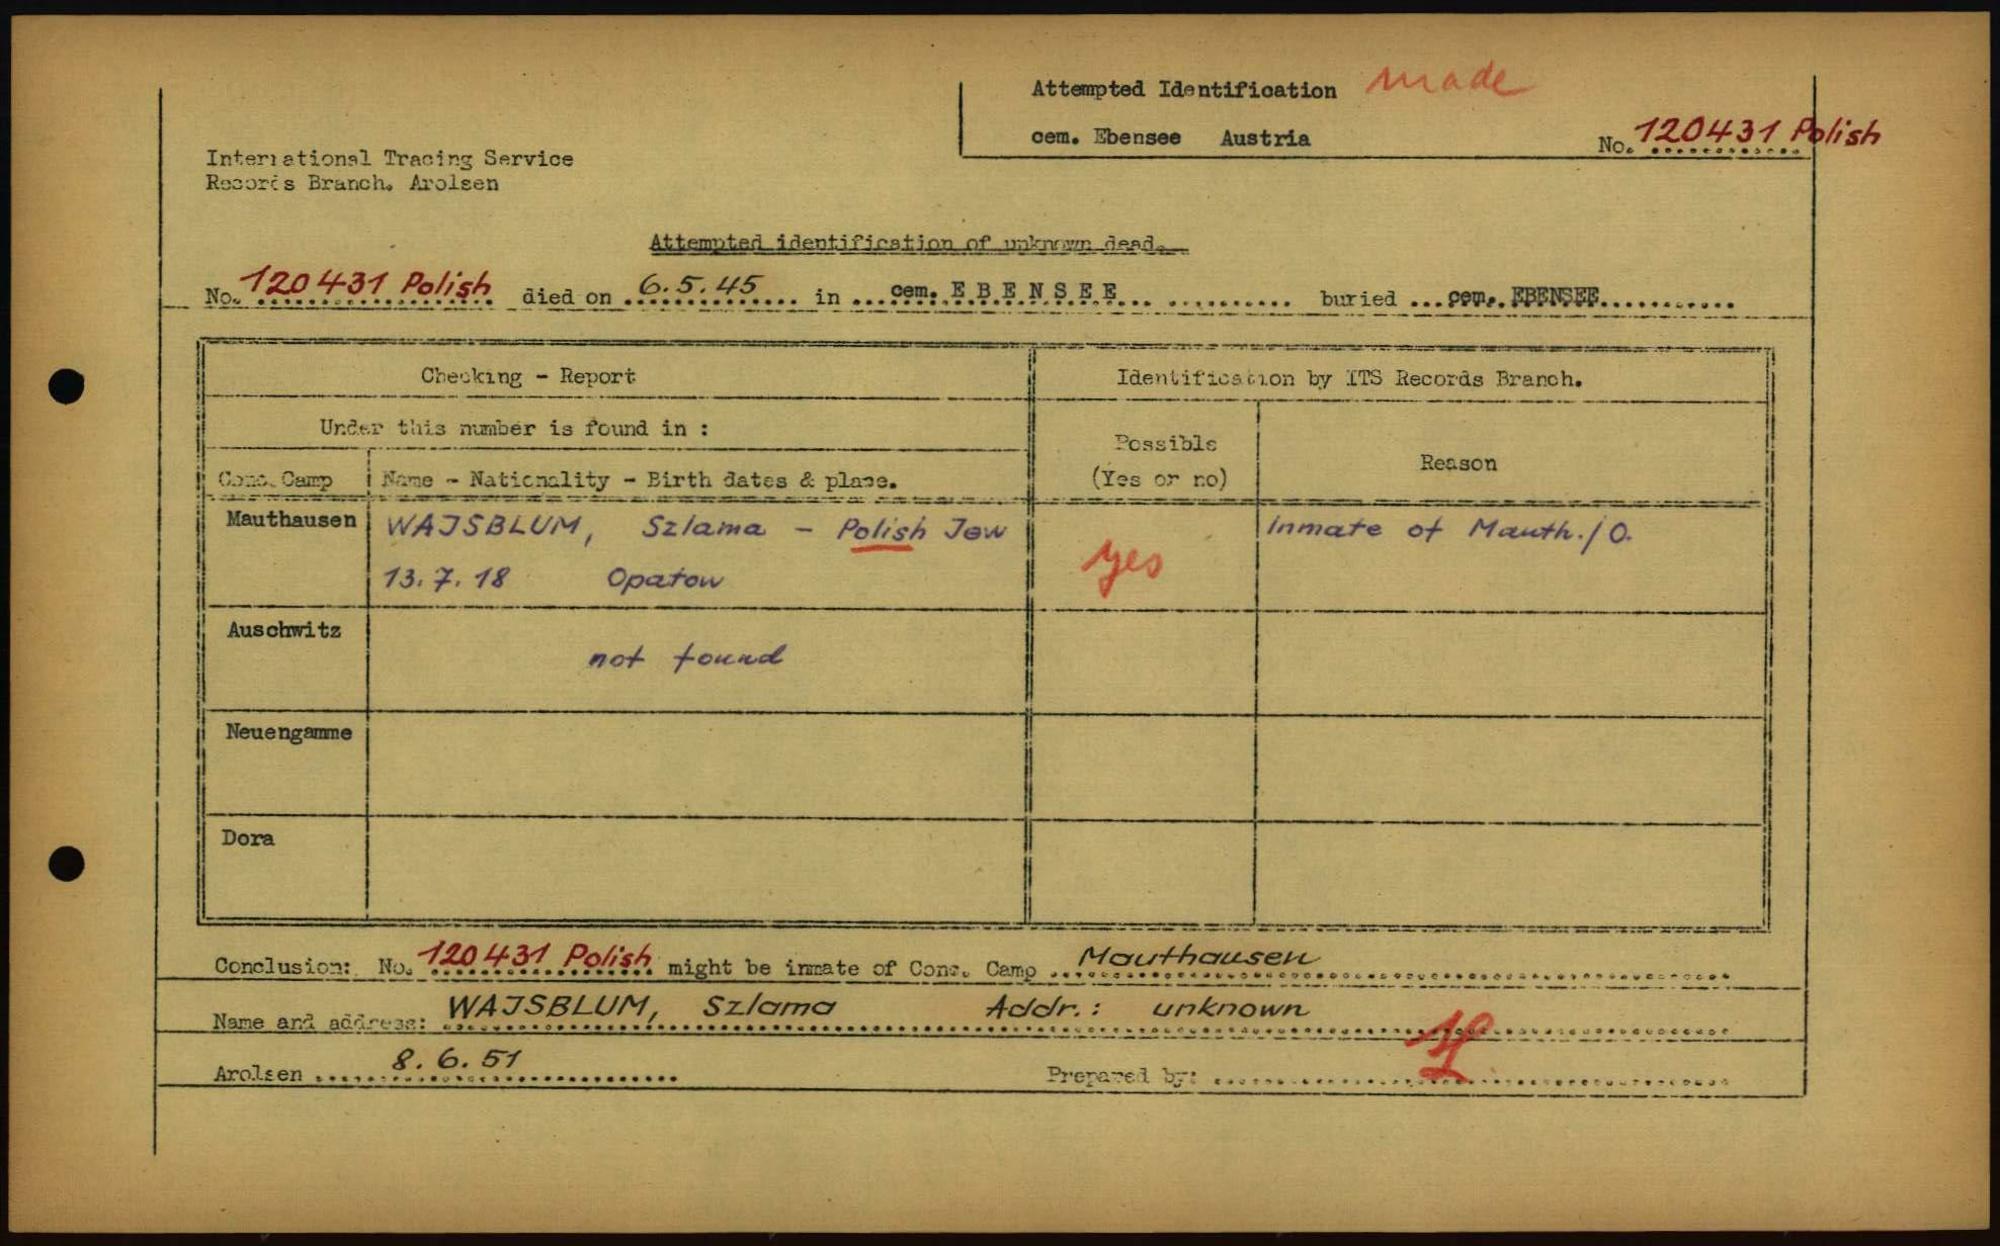 Attempted Identification made
cem. Ebensee Austria No. 120431 Polish
International Tracing Service
Records Branch. Arolsen
Attempted identification of unknown dead.
No. 120431 Polish died on 6.5.45 in cem. EBENSEE buried cem. EBENSEE
Checking - Report Identification by ITS Records Branch.
Under this number is found in :
Possible
(Yes or no)
Reason
Conc. Camp Name - Nationality - Birth dates & place.
Mauthausen WAJSBLUM, Szlama - Polish Jew yes Inmate of Mauth./O.
13.7.18 Opatow
Auschwitz not found
Neuengamme
Dora
Conclusion: No. 120431 Polish might be inmate of Conc. Camp Mauthausen
Name and address: WAJSBLUM, Szlama Addr.: unknown
Arolsen 8.6.51 Prepared by: